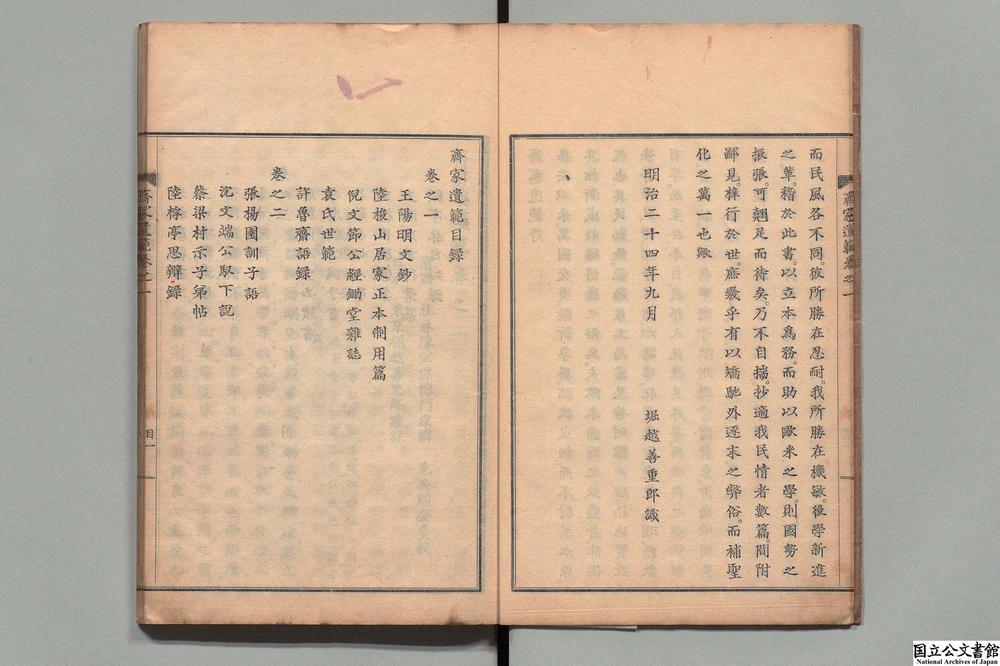 而民風各不同。彼所勝在忍耐。我所勝在機敏。後學新進
之草。稽於此書。以立本爲務。而助以歐米之學。則國勢之
振張。可翹足而待矣。乃不自揣。抄適我民情者數篇。間附
鄙見。梓行於世。庶幾乎有以矯馳外逐末之弊俗。而補聖
化之萬一也歟
明治二十四年九月
堀越善重郎識
齊家遺範目錄
卷之一
王陽明文鈔
陸梭山居家正本制用篇
倪文節公經鋤堂雜誌
袁氏世範
許魯齋語錄
卷之二
張楊園訓子語
沈文端公馭下說
蔡梁村示子弟帖
陸桴亭思辨錄
齊家遺範卷之一
目一
国立公文書館
National Archives of Japan